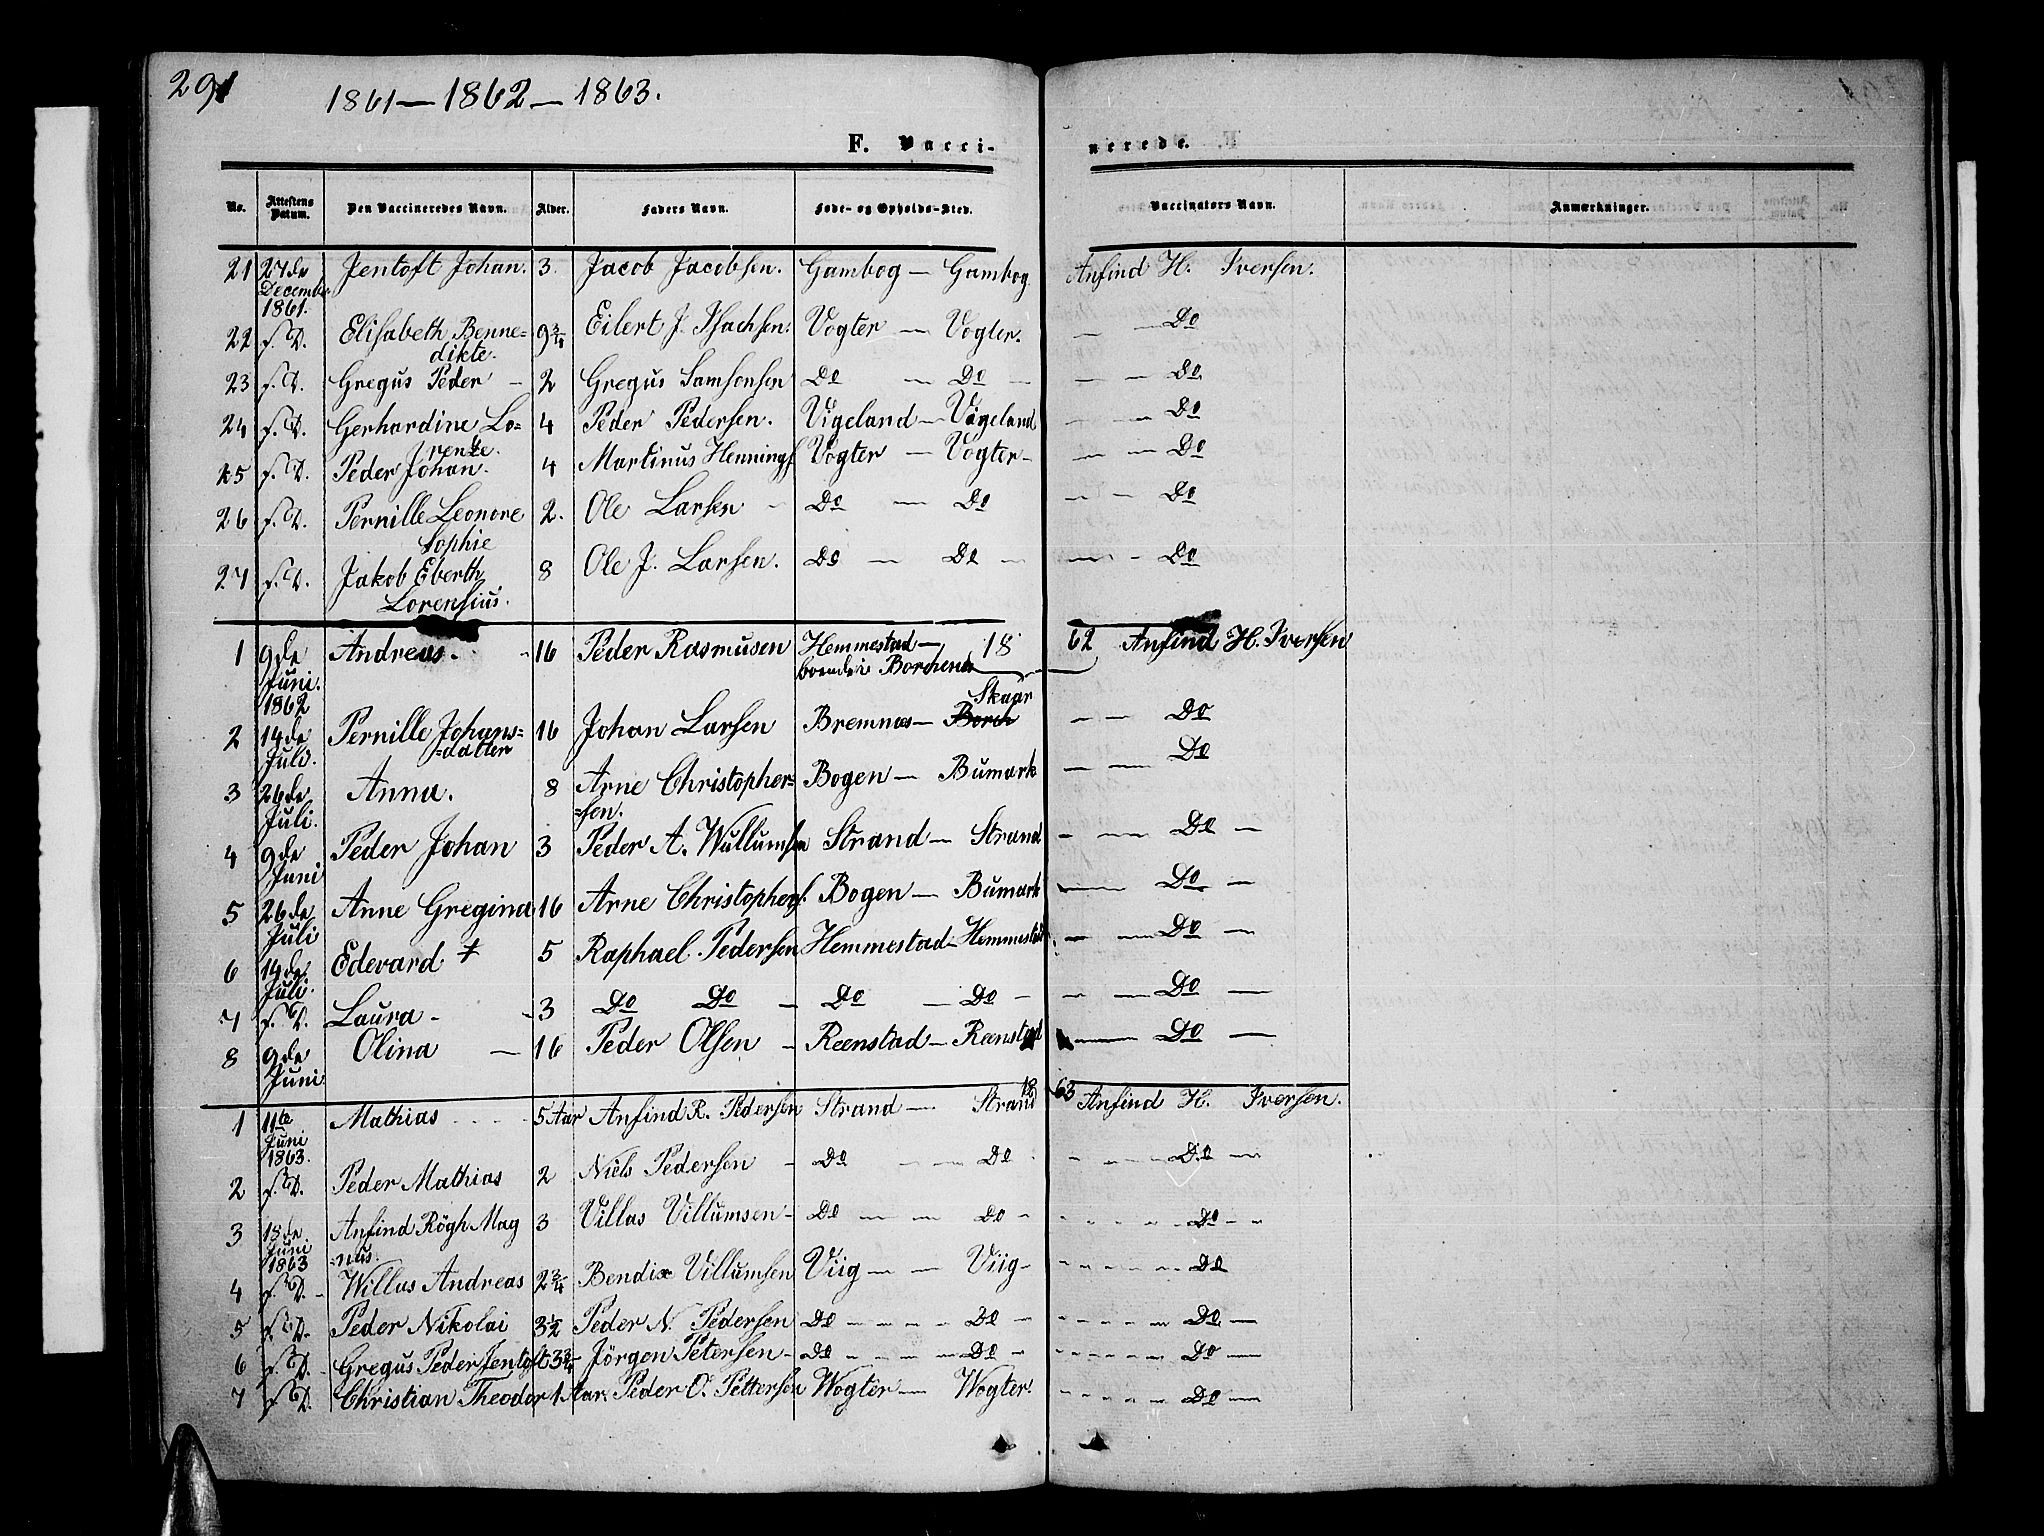 291
1861 — 1862 — 1863.
F. Vacci- nerede.
No. Attestens Datum. Den Vaccineredes Navn. Alder. Faders Navn. Føde- og Opholds-Sted. Vaccinators Navn. Anmærkninger.
21 27de December 1861. Jentoft Johan. 3. Jacob Jacobsen. Gambog — Gambog Anfind H. Iversen.
22 s. D. Elisabeth Benne= 9 3/4 Eilert J. Isachsen. Vogter — Vogter. — — Do
dikte.
23 s. D. Gregus Peder — 2 Gregus Samsonsen Do — Do — — — Do
24 s. D. Gerhardine Lo= 4 Peder Pedersen. Vigeland — Vigeland — — Do
rentze.
25 s. D. Peder Johan. 4 Martinus Hennings. Vogter — Vogter — — — Do
26 s. D. Pernille Leonore 2. Ole Larsen — Do — Do — — Do
Sophie
27 s. D. Jakob Eberth 8 Ole J. Larsen. Do — Do — — — Do
Lorensius.
1 9de Juni. 1862 Andreas. 16 Peder Rasmusen Hemmestad — 18 62 Anfind H. Iversen
boende i Borchenes
Skaar
2 14de Juli. Pernille Johans= 16 Johan Larsen Bremnæs — Borch — — Do
=datter
3 26de Juli. Anna. 8 Arne Christopher= Bogen — Bumark — — Do
=sen.
4 9de Juni Peder Johan 3 Peder A. Wullumsen Strand — Strand — — Do —
5 26de Juli Anne Gregina 16 Arne Christophers. Bogen — Bumark — Do —
6 14de Juli. Edevard ‡ 5 Raphael Pedersen Hemmestad — Hemmestad — — Do —
7 s. D. Laura — 3 Do Do — Do — Do — — — Do —
8 9de Juni Olina — 16 Peder Olsen — Reenstad — Reenstad — Do —
18 63
1 11te Juni 1863. Mathias 5 Aar Anfind R. Pedersen Strand — Strand Anfind H. Iversen.
2 s. D. Peder Mathias 2 Niels Pedersen — Do — — Do — — — — Do —
3 15de Juni 1863 Anfind Rögh Mag 3 Villas Villumsen — Do — — Do — — — — — — Do — —
=nus.
4 s. D. — Willus Andreas 2 3/4 Bendix Villumsen Viig — — Viig — — — — — — Do
5 s. D. Peder Nikolai 3 1/2 Peder N. Pedersen Do — — — — Do — — — — — — Do —
6 s. D. Gregus Peder Jentoft 3 3/4 Jörgen Petersen — Do — — — — Do — — — — — — Do —
7 s. D. Christian Theodor 1 Aar. Peder O. Pettersen Wogter — Wogter. — — — — — Do —